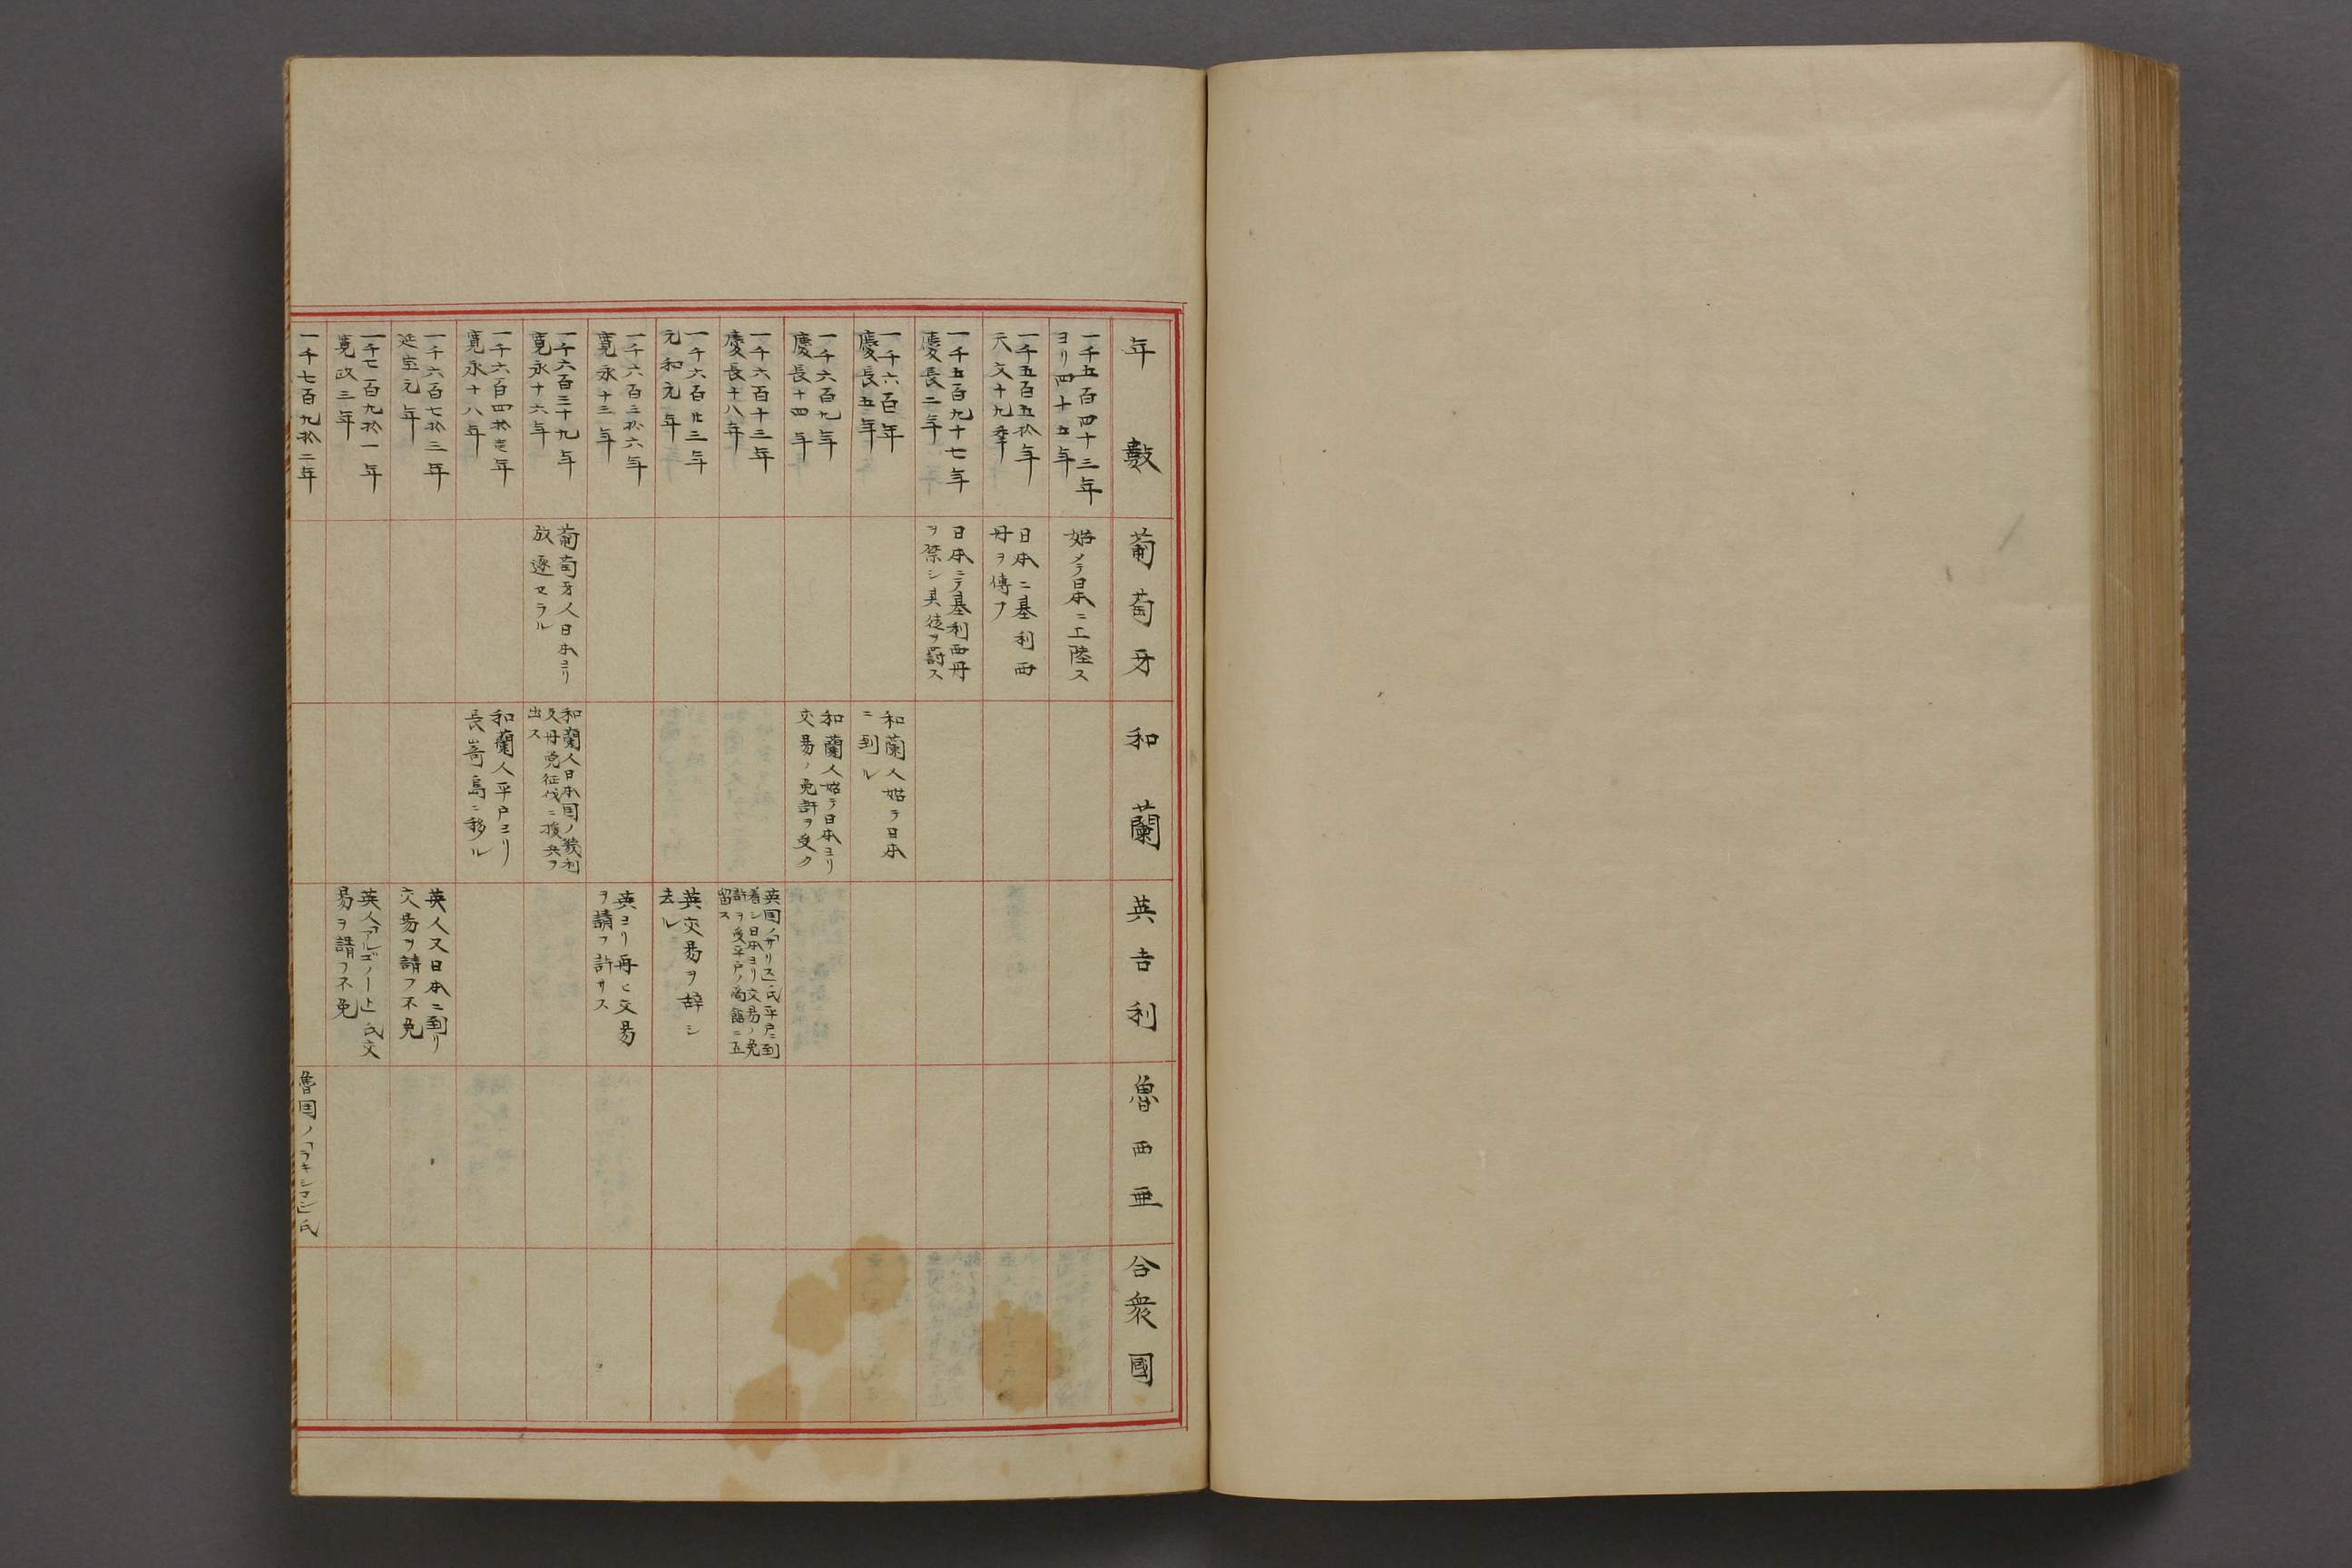 年數
葡萄牙
和蘭
英吉利
魯西亜
合衆國
一千五百四十三年
ヨリ四十五年
始メテ日本ニ上陸ス
一千五百五拾年
天文十九季
日本ニ基利西
丹ヲ傳フ
一千五百九十七年
慶長二年
日本ニテ基利西丹
ヲ禁シ其徒ヲ罰ス
一千六百年
慶長五年
和蘭人始テ日本
ニ到ル
一千六百九年
慶長十四年
和蘭人始テ日本ヨリ
交易ノ免許ヲ受ク
一千六百十三年
慶長十八年
英国ノ「サリス」氏平戸ニ到
着シ日本ヨリ交易ノ免
許ヲ受平戸ノ商館ニ五
留ス
一千六百廿三年
元和元年
英交易ヲ辞シ
去ル
一千六百三拾六年
寛永十三年
英ヨリ再ヒ交易
ヲ請フ許サス
一千六百三十九年
寛永十六年
葡萄牙人日本ヨリ
放逐セラル
和蘭人日本国ノ幾利
支丹党征伐ニ援兵ヲ
出ス
一千六百四拾壱年
寛永十八年
和蘭人平戸ヨリ
長嵜島ニ移ル
一千六百七拾三年
延宝元年
英人又日本ニ到リ
交易ヲ請フ不免
一千七百九拾一年
寛政三年
英人「アルゴノート」氏交
易ヲ請フ不免
一千七百九拾二年
魯国ノ「ラキシマン」氏